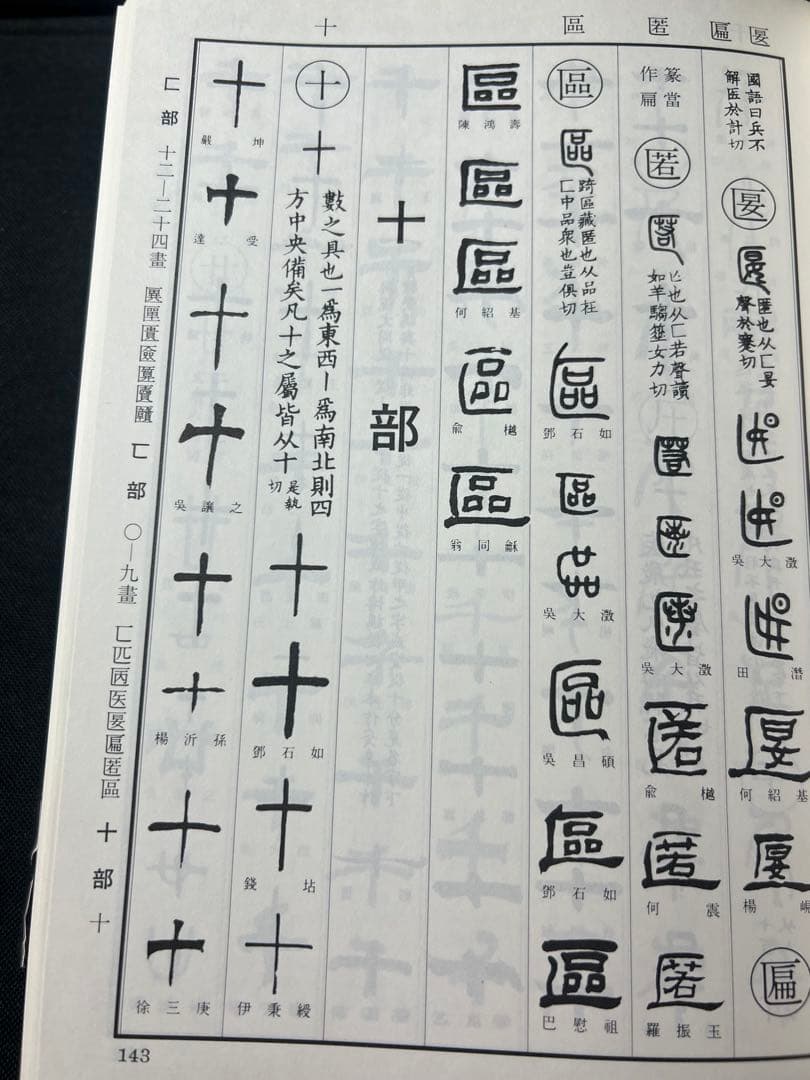 十 區 匿 匾 匽
國語曰兵不
解医於計切
匽
匽 匿也从匸妟
聲於蹇切
吳大澂
田潛
匽
何紹基
匽
楊峴
匾
篆當
作扁
匿
匿 亡也从匸若聲讀
如羊騶箠女力切
吳大澂
匿
俞樾
匿
何震
匿
羅振玉
區
區 踦區藏匿也从品在
匸中品眾也豈俱切
區
鄧石如
區
吳大澂
區
吳昌碩
區
鄧石如
區
巴慰祖
區
陳鴻壽
區
區
何紹基
區
俞樾
區
翁同龢
十部
十
十
數之具也一爲東西丨爲南北則四
方中央備矣凡十之屬皆从十 是執
切
十
十
鄧石如
十
錢坫
十
伊秉綬
十
嚴坤
十
達受
十
十
吳讓之
十
十
楊沂孫
十
十
徐三庚
匚部 十二—二十四畫
匸部 〇—九畫 匸匹匧医匽匾匿區
十部 十
143